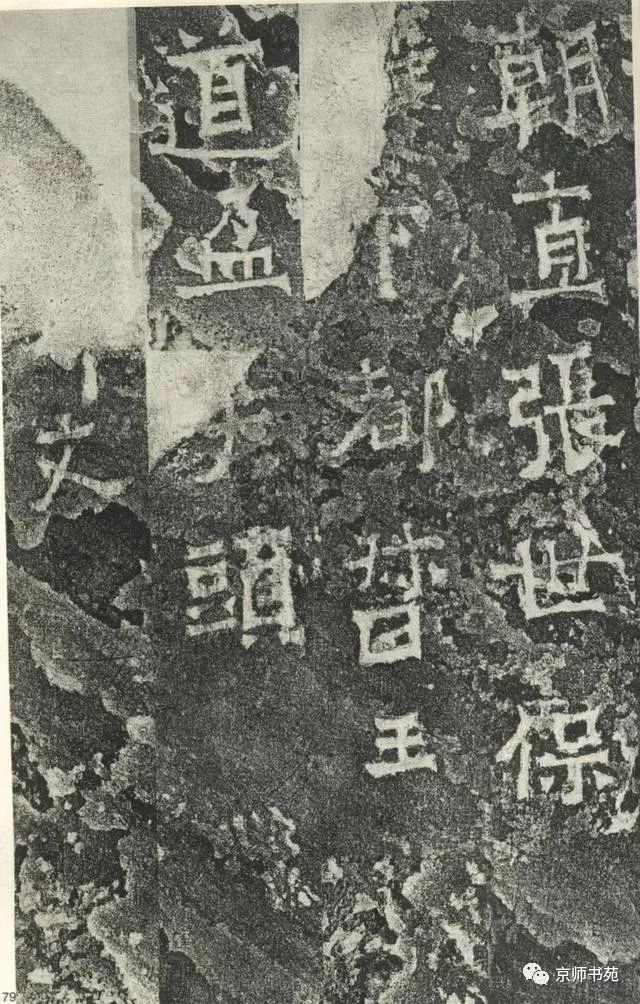 朝直張世保
下都督王
道盈
頭
大
79
京师书苑